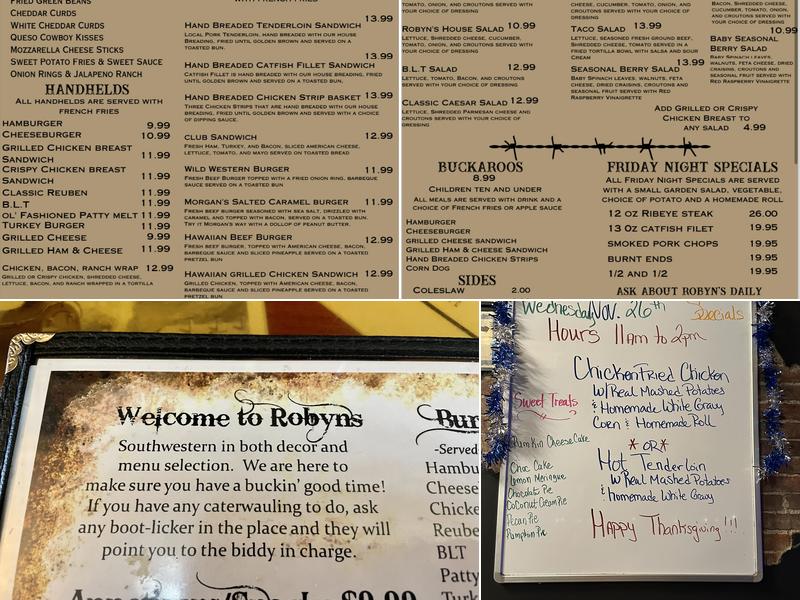 FRIED GREEN BEANS
CHEDDAR CURDS
WHITE CHEDDAR CURDS
QUESO COWBOY KISSES
MOZZARELLA CHEESE STICKS
SWEET POTATO FRIES & SWEET SAUCE
ONION RINGS & JALAPENO RANCH
HANDHELDS
ALL HANDHELDS ARE SERVED WITH
FRENCH FRIES
HAMBURGER 9.99
CHEESEBURGER 10.99
GRILLED CHICKEN BREAST
SANDWICH 11.99
CRISPY CHICKEN BREAST
SANDWICH 11.99
CLASSIC REUBEN 11.99
B.L.T 11.99
OL' FASHIONED PATTY MELT 11.99
TURKEY BURGER 11.99
GRILLED CHEESE 9.99
GRILLED HAM & CHEESE 11.99
CHICKEN, BACON, RANCH WRAP 12.99
GRILLED OR CRISPY CHICKEN, SHREDDED CHEESE,
LETTUCE, BACON, AND RANCH WRAPPED IN A TORTILLA
HAND BREADED TENDERLOIN SANDWICH 13.99
LOCAL PORK TENDERLOIN, HAND BREADED WITH OUR HOUSE
BREADING, FRIED UNTIL GOLDEN BROWN AND SERVED ON A
TOASTED BUN.
HAND BREADED CATFISH FILLET SANDWICH 13.99
CATFISH FILLET IS HAND BREADED WITH OUR HOUSE BREADING, FRIED
UNTIL GOLDEN BROWN AND SERVED ON A TOASTED BUN.
HAND BREADED CHICKEN STRIP BASKET 13.99
THREE CHICKEN STRIPS THAT ARE HAND BREADED WITH OUR HOUSE
BREADING, FRIED UNTIL GOLDEN BROWN AND SERVED WITH A CHOICE
OF DIPPING SAUCE.
CLUB SANDWICH 12.99
FRESH HAM, TURKEY, AND BACON, SLICED AMERICAN CHEESE,
LETTUCE, TOMATO, AND MAYO SERVED ON TOASTED BREAD
WILD WESTERN BURGER 11.99
FRESH BEEF BURGER TOPPED WITH A FRIED ONION RING, BARBEQUE
SAUCE SERVED ON A TOASTED BUN
MORGAN'S SALTED CARAMEL BURGER 11.99
FRESH BEEF BURGER SEASONED WITH SEA SALT, DRIZZLED WITH
CARAMEL AND TOPPED WITH BACON, SERVED ON A TOASTED BUN.
TRY IT MORGAN'S WAY WITH A DOLLOP OF PEANUT BUTTER.
HAWAIIAN BEEF BURGER 12.99
FRESH BEEF BURGER, TOPPED WITH AMERICAN CHEESE, BACON,
BARBEQUE SAUCE AND SLICED PINEAPPLE SERVED ON A TOASTED
PRETZEL BUN
HAWAIIAN GRILLED CHICKEN SANDWICH 12.99
GRILLED CHICKEN, TOPPED WITH AMERICAN CHEESE, BACON,
BARBEQUE SAUCE AND SLICED PINEAPPLE SERVED ON A TOASTED
PRETZEL BUN
TOMATO, ONION, AND CROUTONS SERVED WITH
YOUR CHOICE OF DRESSING
ROBYN'S HOUSE SALAD 10.99
LETTUCE, SHREDDED CHEESE, CUCUMBER,
TOMATO, ONION, AND CROUTONS SERVED WITH
YOUR CHOICE OF DRESSING
B.L.T SALAD 12.99
LETTUCE, TOMATO, BACON, AND CROUTONS
SERVED WITH YOUR CHOICE OF DRESSING
CLASSIC CAESAR SALAD 12.99
LETTUCE, SHREDDED PARMESAN CHEESE AND
CROUTONS SERVED WITH YOUR CHOICE OF
DRESSING
CHEESE, CUCUMBER, TOMATO, ONION, AND
CROUTONS SERVED WITH YOUR CHOICE OF
DRESSING
TACO SALAD 13.99
LETTUCE, SEASONED FRESH GROUND BEEF,
SHREDDED CHEESE, TOMATO SERVED IN A
FRIED TORTILLA BOWL WITH SALSA AND SOUR
CREAM
13.99
SEASONAL BERRY SALAD
BABY SPINACH LEAVES, WALNUTS, FETA
CHEESE, DRIED CRAISINS, CROUTONS AND
SEASONAL FRUIT SERVED WITH RED
RASPBERRY VINAIGRETTE
BACON, SHREDDED CHEESE,
CUCUMBER, TOMATO, ONION,
AND CROUTONS SERVED WITH
YOUR CHOICE OF DRESSING
10.99
BABY SEASONAL
BERRY SALAD
BABY SPINACH LEAVES,
WALNUTS, FETA CHEESE, DRIED
CRAISINS, CROUTONS AND
SEASONAL FRUIT SERVED WITH
RED RASPBERRY VINAIGRETTE
ADD GRILLED OR CRISPY
CHICKEN BREAST TO
ANY SALAD 4.99
BUCKAROOS
8.99
CHILDREN TEN AND UNDER
ALL MEALS ARE SERVED WITH DRINK AND A
CHOICE OF FRENCH FRIES OR APPLE SAUCE
HAMBURGER
CHEESEBURGER
GRILLED CHEESE SANDWICH
GRILLED HAM & CHEESE SANDWICH
HAND BREADED CHICKEN STRIPS
CORN DOG
SIDES
COLESLAW 2.00
FRIDAY NIGHT SPECIALS
ALL FRIDAY NIGHT SPECIALS ARE SERVED
WITH A SMALL GARDEN SALAD, VEGETABLE,
CHOICE OF POTATO AND A HOMEMADE ROLL
12 OZ RIBEYE STEAK 26.00
13 OZ CATFISH FILET 19.95
SMOKED PORK CHOPS 19.95
BURNT ENDS 19.95
1/2 AND 1/2 19.95
ASK ABOUT ROBYN'S DAILY
Welcome to Robyns
Southwestern in both decor and
menu selection. We are here to
make sure you have a buckin' good time!
If you have any caterwauling to do, ask
any boot-licker in the place and they will
point you to the biddy in charge.
Bur
-Served
Hambu
Cheese
Chicke
Reube
BLT
Patty
Turk
Wednesday Nov. 26th Specials
Hours 11am to 2pm
Chicken Fried Chicken
w/Real Mashed Potatoes
& Homemade White Gravy
Corn & Homemade Roll
* OR *
Hot Tenderloin
w/Real Mashed Potatoes
& Homemade White Gravy
Happy Thanksgiving!!!
Sweet Treats
Pumkin CheeseCake
Choc Cake
Lemon Meringue
Chocolate Pie
Coconut Cream Pie
Pecan Pie
Pumpkin Pie